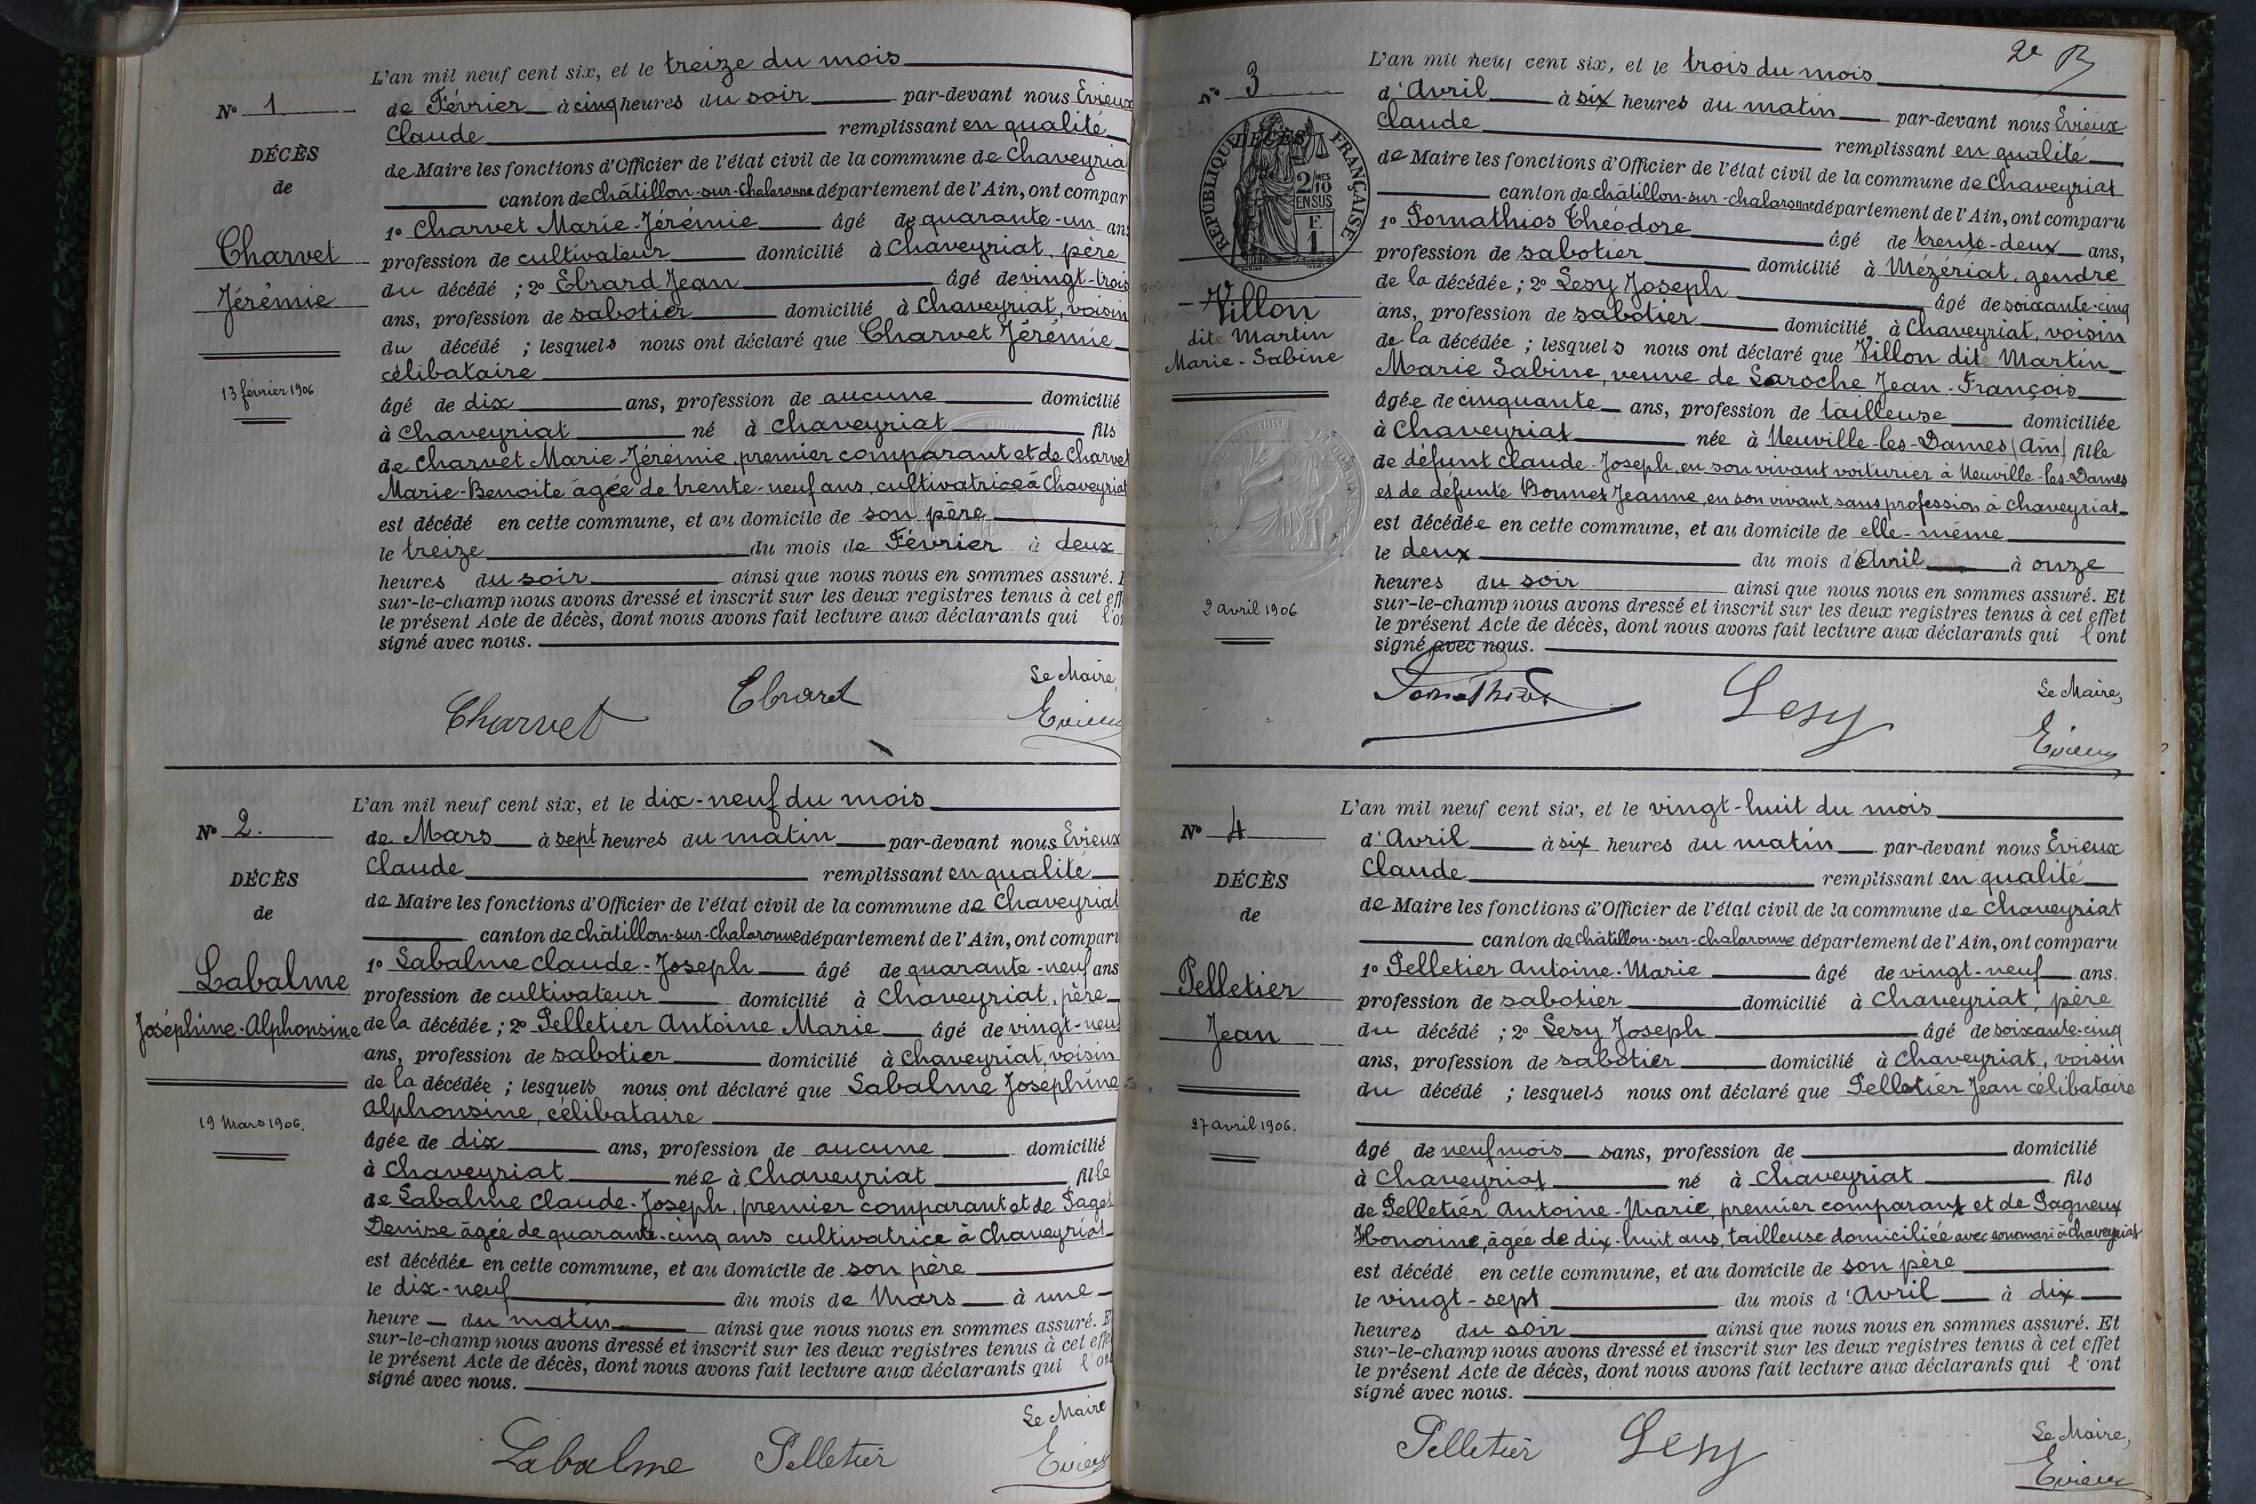 L'an mil neuf cent six, et le treize du mois
de Février à cinq heures du soir par-devant nous Evieux
Claude remplissant en qualité
de Maire les fonctions d'Officier de l'état civil de la commune de Chaveyria
canton de Châtillon-sur-Chalaronne département de l'Ain, ont compar
1º Charvet Marie-Jérémie âgé de quarante-un ans
profession de cultivateur domicilié à Chaveyriat, père
du décédé ; 2º Ebrard Jean âgé de vingt-trois
ans, profession de sabotier domicilié à Chaveyriat, voisin
du décédé ; lesquels nous ont déclaré que Charvet Jérémie
célibataire
âgé de dix ans, profession de aucune domicilié
à Chaveyriat né à Chaveyriat fils
de Charvet Marie-Jérémie, premier comparant et de Charvet
Marie-Benoite âgée de trente-neuf ans, cultivatrice à Chaveyriat
est décédé en cette commune, et au domicile de son père
le treize du mois de Février à deux
heures du soir ainsi que nous nous en sommes assuré. E
sur-le-champ nous avons dressé et inscrit sur les deux registres tenus à cet eff
le présent Acte de décès, dont nous avons fait lecture aux déclarants qui l'on
signé avec nous.
Nº 1
DÉCÈS
de
Charvet
Jérémie
13 février 1906
Le Maire,
Charvet Ebrard Evieux
L'an mil neuf cent six, et le dix-neuf du mois
de Mars à sept heures du matin par-devant nous Evieux
Claude remplissant en qualité
de Maire les fonctions d'Officier de l'état civil de la commune de Chaveyriat
canton de Châtillon-sur-Chalaronne département de l'Ain, ont comparu
1º Labalme Claude-Joseph âgé de quarante-neuf ans
profession de cultivateur domicilié à Chaveyriat, père
de la décédée ; 2º Pelletier Antoine Marie âgé de vingt-neuf
ans, profession de sabotier domicilié à Chaveyriat, voisin
de la décédée ; lesquels nous ont déclaré que Labalme Joséphine
Alphonsine, célibataire
âgée de dix ans, profession de aucune domicilié
à Chaveyriat née à Chaveyriat fille
de Labalme Claude-Joseph, premier comparant et de Paget
Denise âgée de quarante-cinq ans cultivatrice à Chaveyriat
est décédée en cette commune, et au domicile de son père
le dix-neuf du mois de Mars à une
heure du matin ainsi que nous nous en sommes assuré. E
sur-le-champ nous avons dressé et inscrit sur les deux registres tenus à cet effe
le présent Acte de décès, dont nous avons fait lecture aux déclarants qui l'ont
signé avec nous.
Nº 2.
DÉCÈS
de
Labalme
Joséphine-Alphonsine
19 Mars 1906.
Le Maire
Labalme Pelletier Evieux
2e
L'an mil neuf cent six, et le trois du mois
d'Avril à six heures du matin par-devant nous Evieux
Claude remplissant en qualité
de Maire les fonctions d'Officier de l'état civil de la commune de Chaveyriat
canton de Châtillon-sur-Chalaronne département de l'Ain, ont comparu
1º Pomathios Théodore âgé de trente-deux ans,
profession de sabotier domicilié à Mézériat, gendre
de la décédée ; 2º Lesy Joseph âgé de soixante-cinq
ans, profession de sabotier domicilié à Chaveyriat, voisin
de la décédée ; lesquels nous ont déclaré que Villon dite Martin
Marie Sabine, veuve de Laroche Jean-François
âgée de cinquante ans, profession de tailleuse domiciliée
à Chaveyriat née à Neuville-les-Dames (Ain) fille
de défunt Claude-Joseph, en son vivant voiturier à Neuville-les-Dames
et de défunte Bonnet Jeanne, en son vivant, sans profession à Chaveyriat
est décédée en cette commune, et au domicile de elle-même
le deux du mois d'Avril à onze
heures du soir ainsi que nous nous en sommes assuré. Et
sur-le-champ nous avons dressé et inscrit sur les deux registres tenus à cet effet
le présent Acte de décès, dont nous avons fait lecture aux déclarants qui l'ont
signé avec nous.
Nº 3
DÉCÈS
RÉPUBLIQUE FRANÇAISE
2/10 MES
EN SUS
F.
1
Villon
dite Martin
Marie-Sabine
2 avril 1906
Le Maire,
Pomathios Lesy Evieux
L'an mil neuf cent six, et le vingt-huit du mois
d'Avril à six heures du matin par-devant nous Evieux
Claude remplissant en qualité
de Maire les fonctions d'Officier de l'état civil de la commune de Chaveyriat
canton de Châtillon-sur-Chalaronne département de l'Ain, ont comparu
1º Pelletier Antoine-Marie âgé de vingt-neuf ans.
profession de sabotier domicilié à Chaveyriat, père
du décédé ; 2º Lesy Joseph âgé de soixante-cinq
ans, profession de sabotier domicilié à Chaveyriat, voisin
du décédé ; lesquels nous ont déclaré que Pelletier Jean célibataire
âgé de neuf mois sans, profession de domicilié
à Chaveyriat né à Chaveyriat fils
de Pelletier Antoine-Marie, premier comparant et de Pagneux
Honorine, âgée de dix-huit ans, tailleuse domiciliée avec son mari à Chaveyriat
est décédé en cette commune, et au domicile de son père
le vingt-sept du mois d'Avril à dix
heures du soir ainsi que nous nous en sommes assuré. Et
sur-le-champ nous avons dressé et inscrit sur les deux registres tenus à cet effet
le présent Acte de décès, dont nous avons fait lecture aux déclarants qui l'ont
signé avec nous.
Nº 4
DÉCÈS
de
Pelletier
Jean
27 avril 1906.
Le Maire,
Pelletier Lesy Evieux